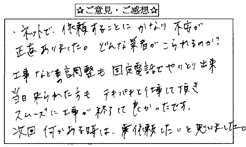 ☆ご意見・ご感想☆
・ネットで、依頼することに かなり 不安が
正直ありました。どんな業者がこられるのか?
工事など事前調整も 固定電話でやりとり出来
当日来られた方も テキパキと作業して頂き
スムーズに工事が 終了して良かったです。
次回 何かある時は、再依頼したいと思いました。